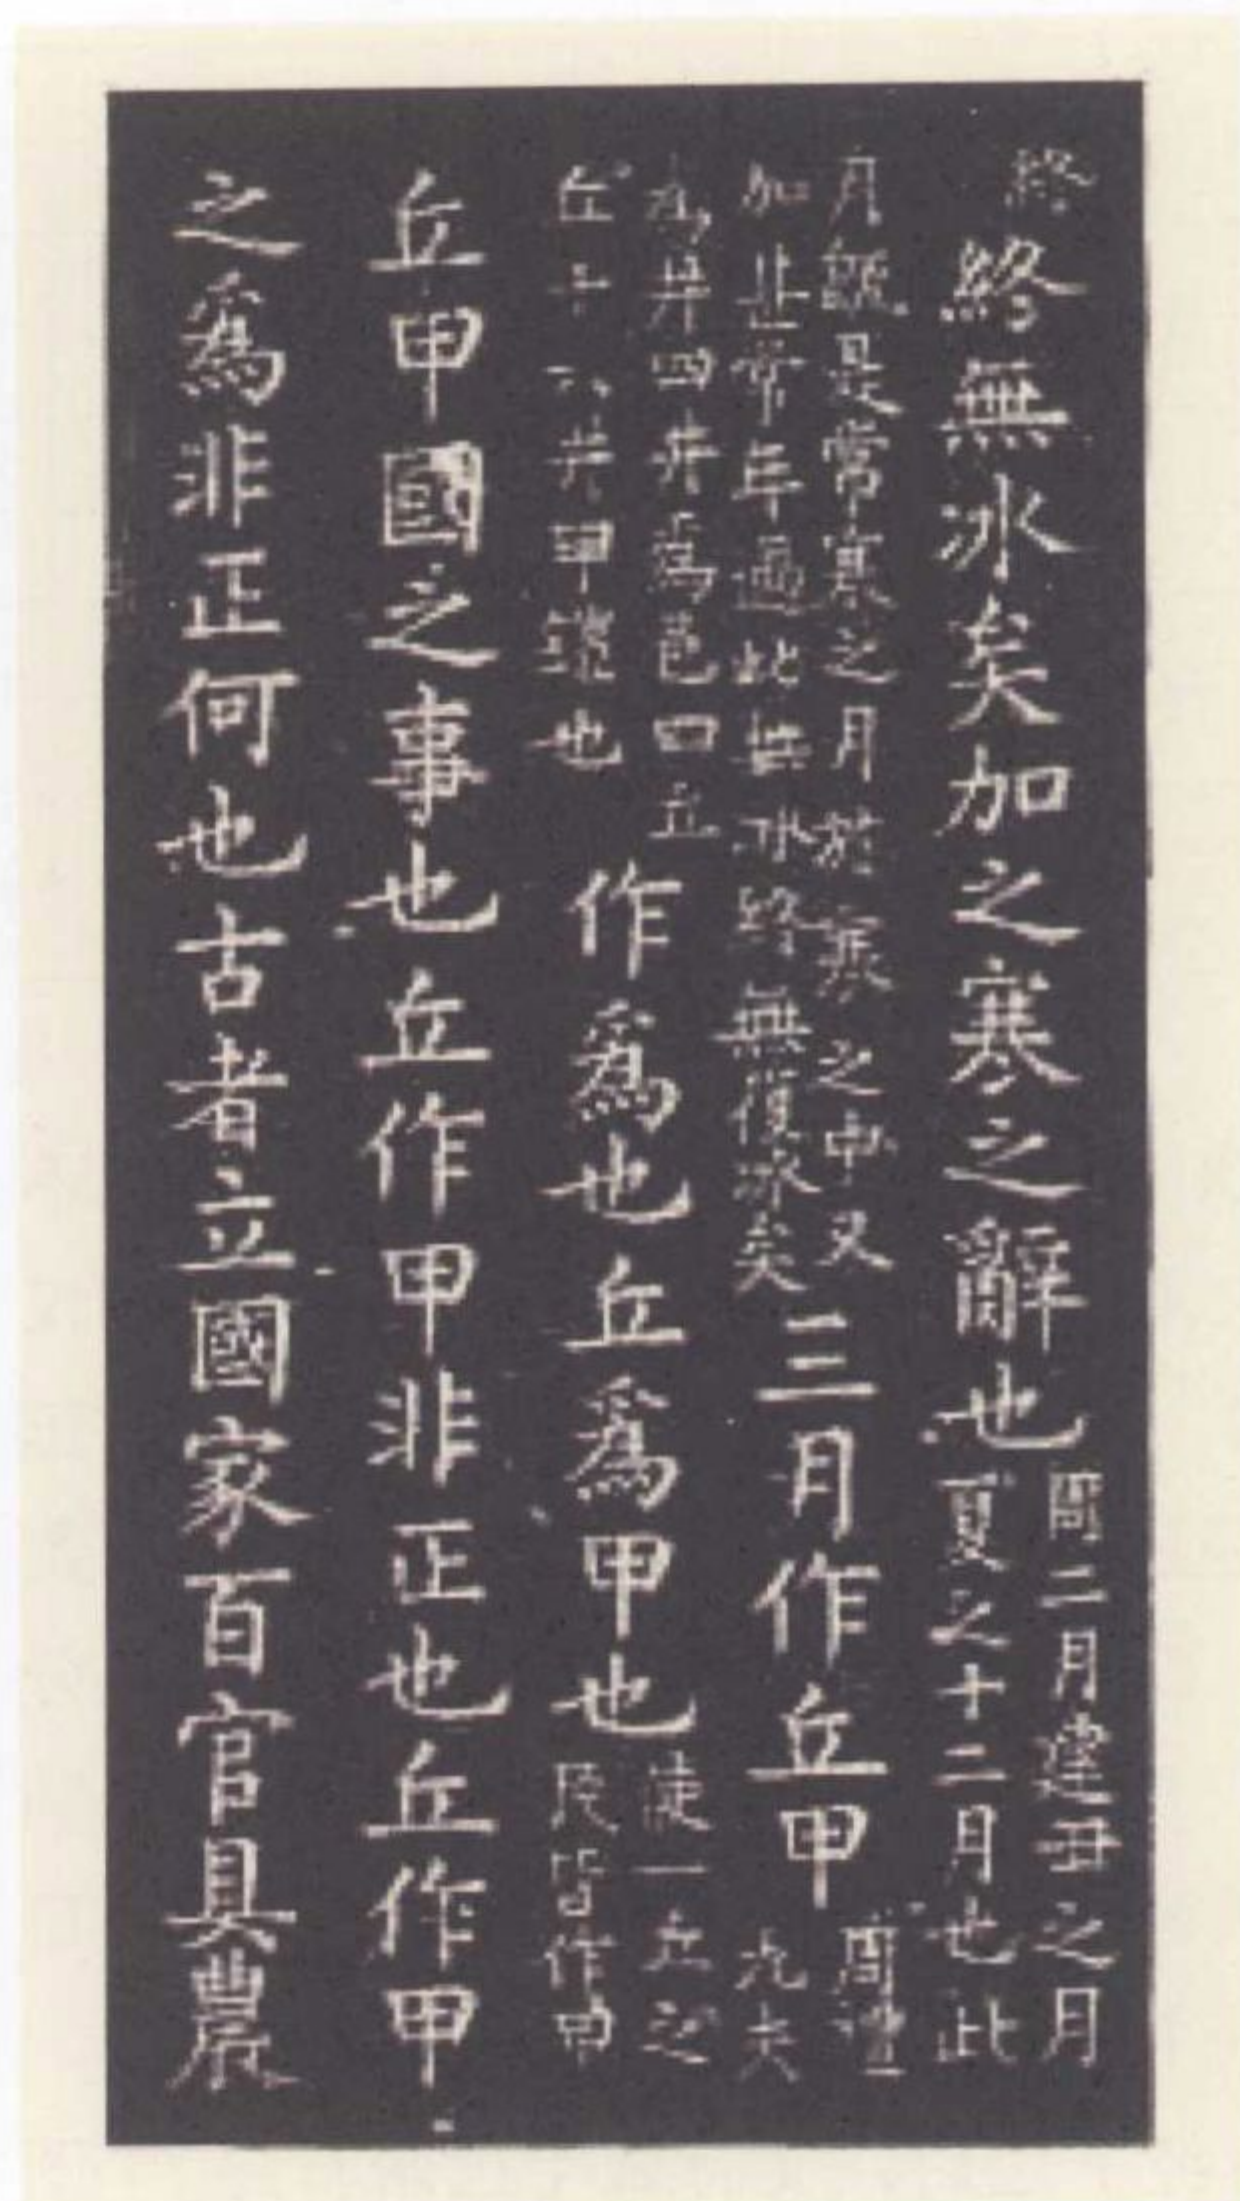 終終無冰矣加之寒之辭也
周二月建丑之月
夏之十二月也此
月既是常寒之月於寒之中又
加甚常年過此無冰終無復冰矣
三月作丘甲
周禮
九夫
為井四井為邑四丘
丘十六井甲鎧也
作為也丘為甲也
使一丘之
民皆作甲
丘甲國之事也丘作甲非正也丘作甲
之為非正何也古者立國家百官具農